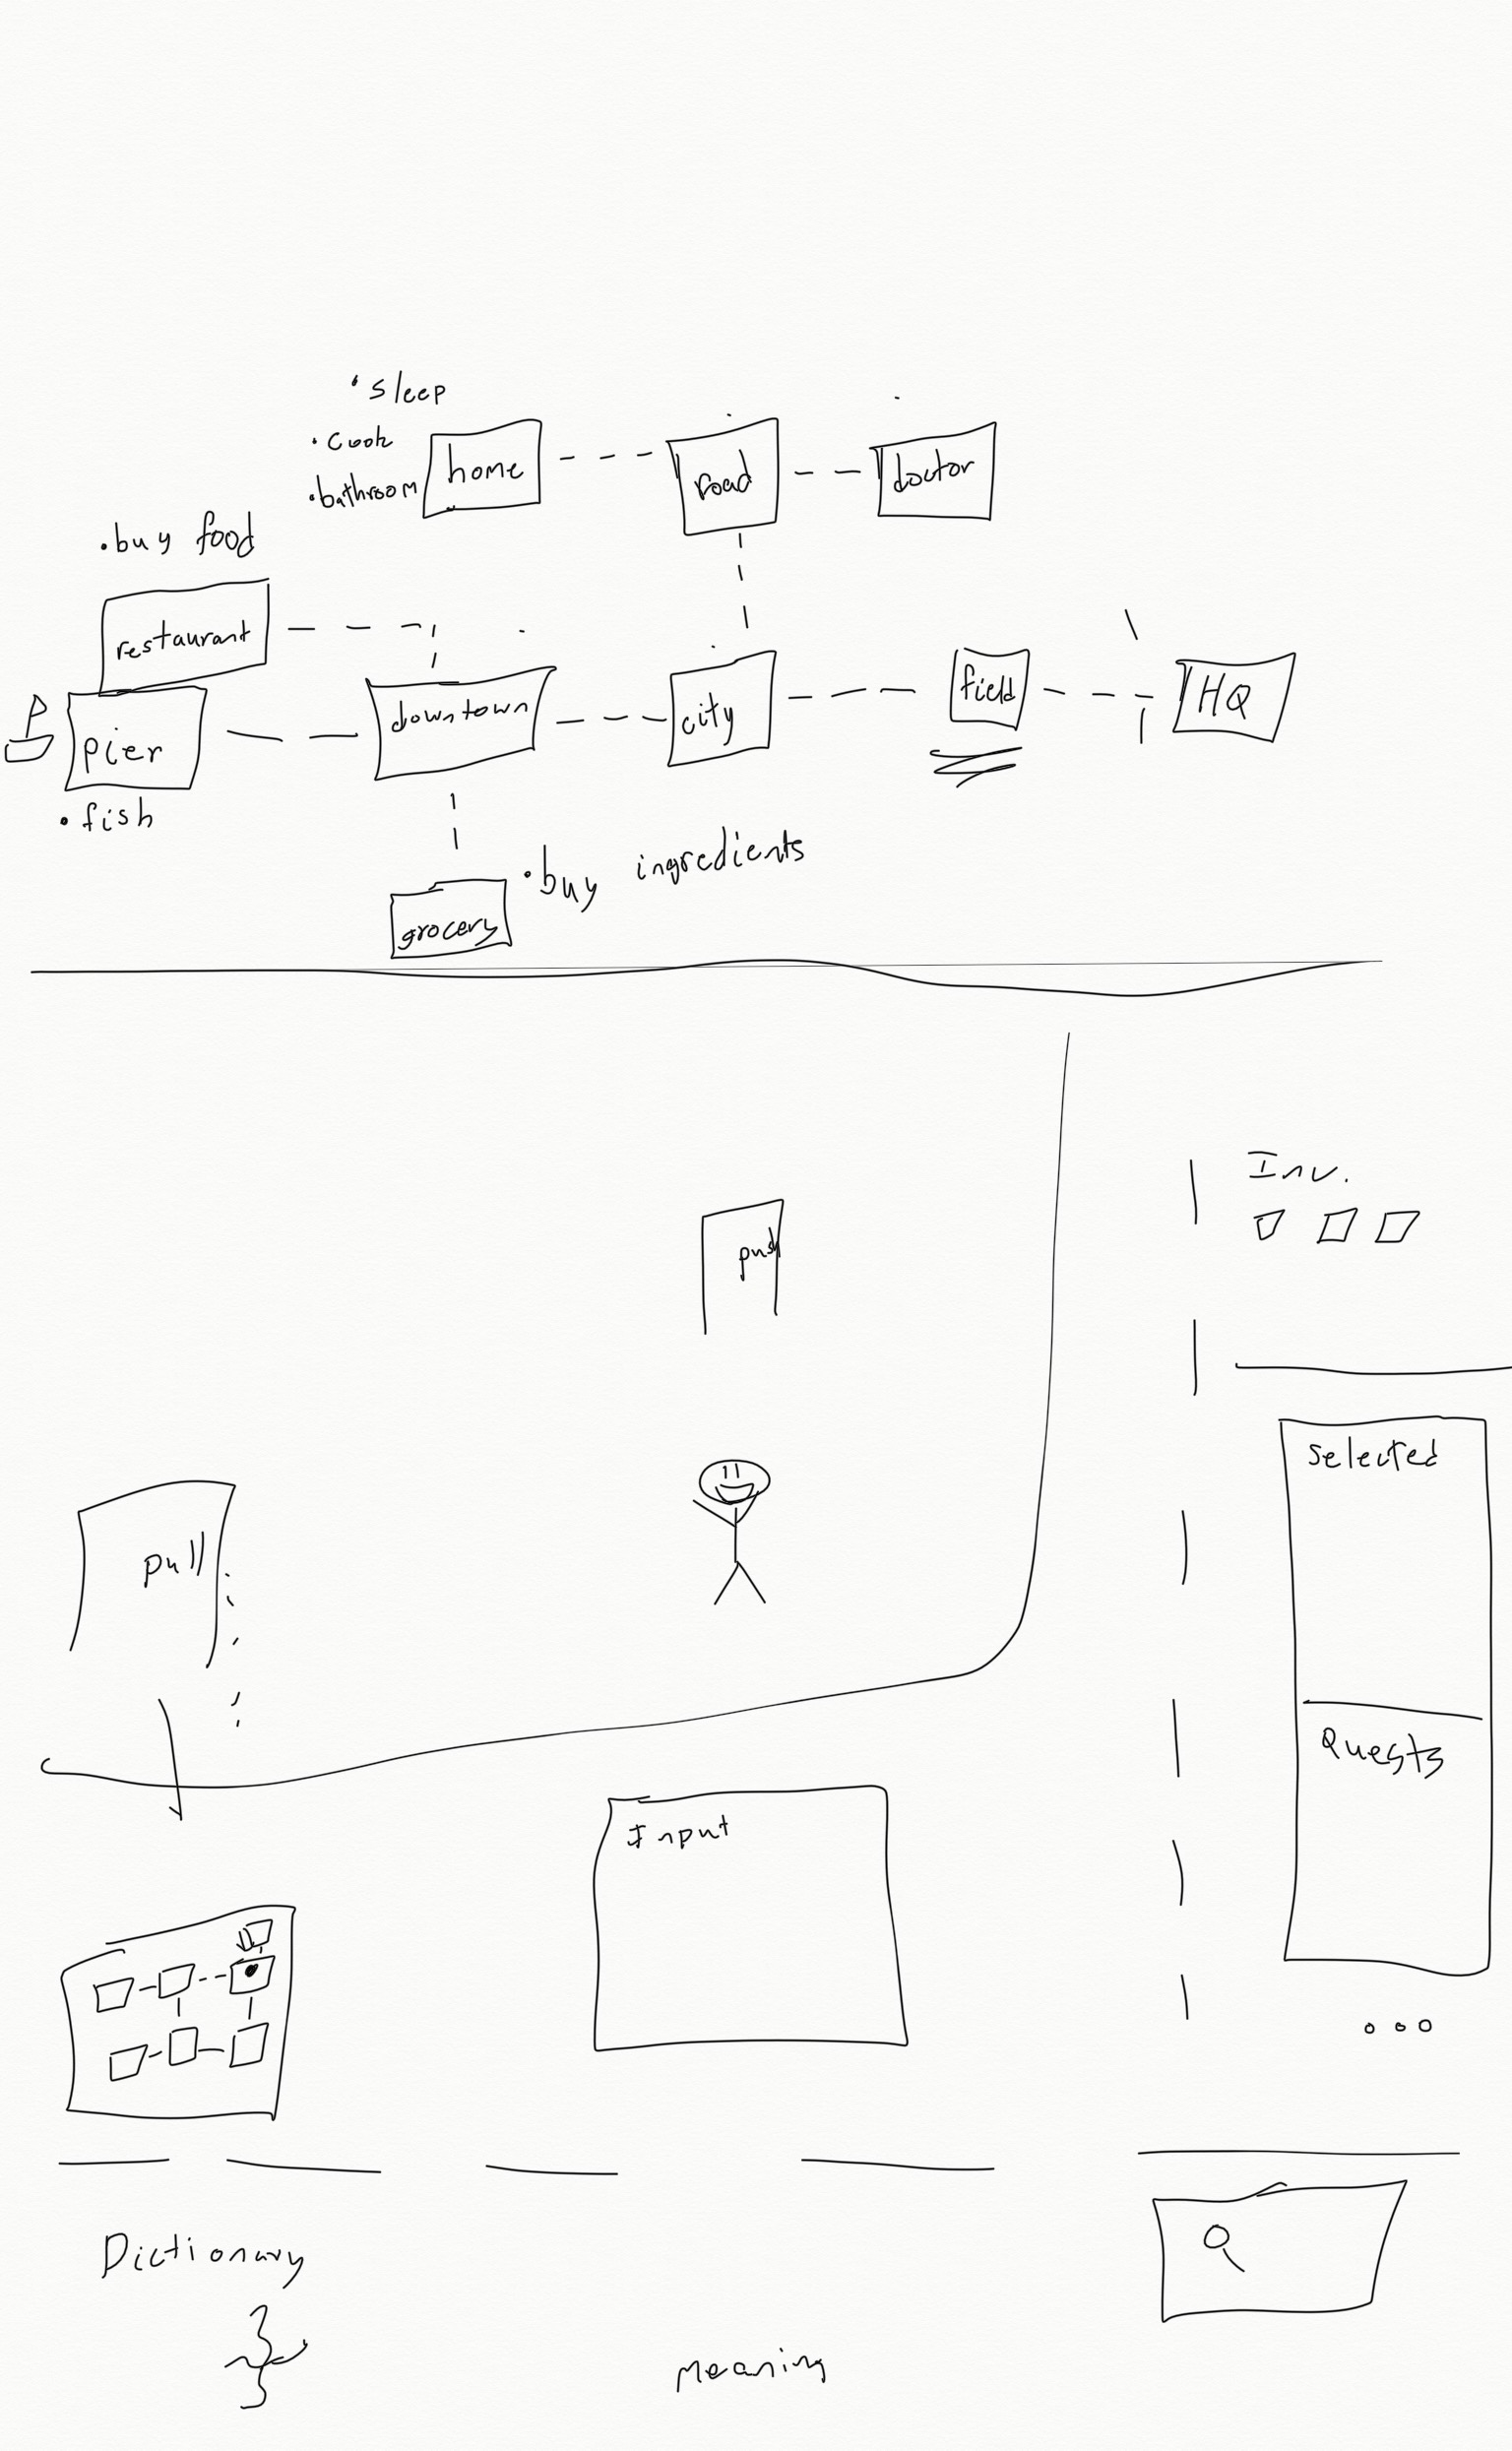 • sleep
• cook
• bathroom
home
road
doctor
• buy food
restaurant
pier
downtown
city
field
HQ
• fish
• buy ingredients
grocery
push
Inv.
pull
Selected
Quests
Input
Dictionary
meaning